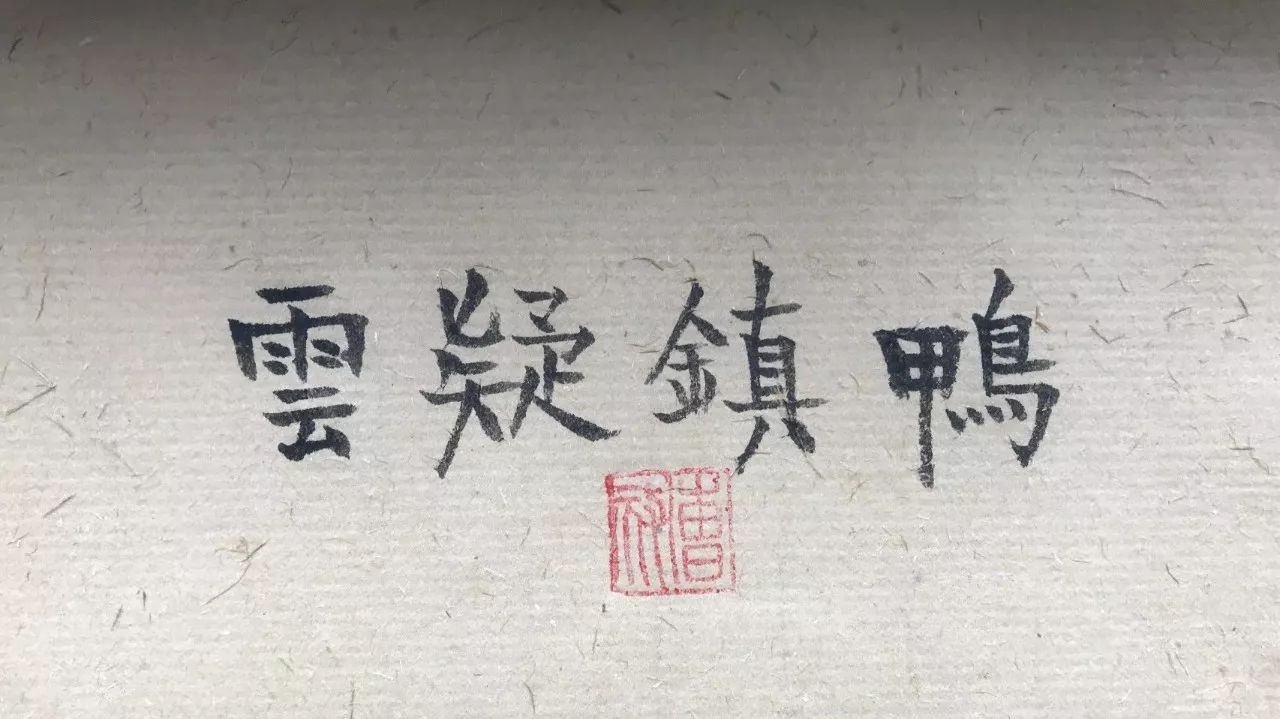 鴨鎮疑雲